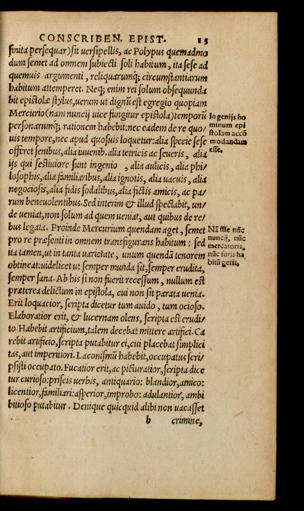 CONSCRIBEN. EPIST. 15
finita persequar) sit uersipellis, ac Polypus quemadmo
dum semet ad omnem subiecti soli habitum, ita sese ad
quemuis argumenti, reliquarumq; circumstantiarum
habitum attemperet. Neq; enim rei solum obsequunda
bit epistolæ stylus, uerum ut dignũ est egregio quopiam
Mercurio (nam nuncij uice fungitur epistola) temporũ
personarumq; rationem habebit. nec eadem de re quo/
uis tempore, nec apud quosuis loquetur: alia specie sese
offeret senibus, alia iuuenib. alia tetricis ac seueris, alia
ijs qui festiuiore sunt ingenio, alia aulicis, alia philo
losophis, alia familiaribus, alia ignotis, alia uacuis, alia
negociosis, alia fidis sodalibus, alia fictis amicis, ac pa/
rum beneuolentibus. Sed interim & illud spectabit, un/
de ueniat, non solum ad quem ueniat, aut quibus de re/
bus legata. Proinde Mercurium quendam aget, semet
pro re præsenti in omnem transfigurans habitum: sed
ita tamen, ut in tanta uarietate, unum quendã tenorem
obtineat: uidelicet ut semper munda sit, semper erudita,
semper sana. Ab his si non fuerit recessum, nullum est
præterea delictum in epistola, cui non sit parata uenia.
Erit loquacior, scripta dicetur tum auido, tum ocioso.
Elaboratior erit, & lucernam olens, scripta est erudi/
to. Habebit artificium, talem decebat mittere artifici. Ca
rebit artificio, scripta putabitur ei, cui placebat simplici
tas, aut imperitiori. Laconismũ habebit, occupatus scri/
psisti occupato. Fucatior erit, ac picturatior, scripta dice
tur curioso: priscis uerbis, antiquario: blandior, amico:
licentior, familiari: asperior, improbo: adulantior, ambi
bitioso putabitur. Denique quicquid alibi non uacasset
b crimine,
In genijs ho
minum epi
stolam accõ
modandam
esse.
Nũ ille nũc
nuncij, nũc
mercatoris,
nũc furis ha
bitũ gerit,